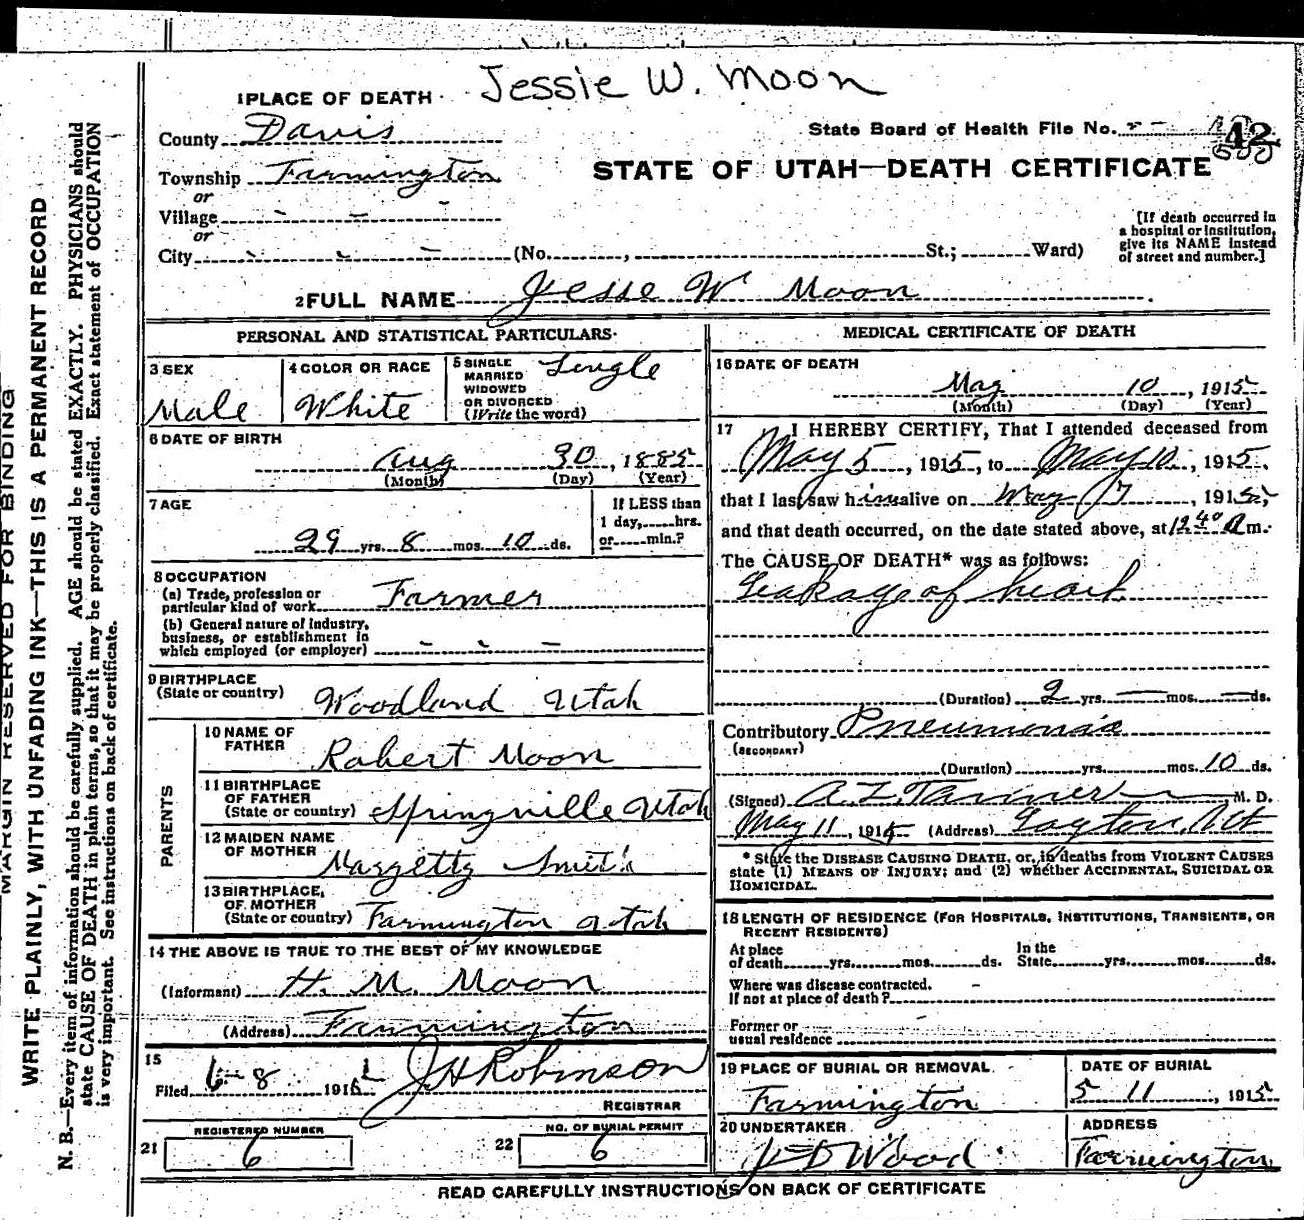 Jessie W. Moon
1 PLACE OF DEATH
County Davis
State Board of Health File No. 42
Township Farmington
STATE OF UTAH—DEATH CERTIFICATE
or
Village - - -
or
City - - - (No. , St.; Ward)
[If death occurred in a hospital or institution, give its NAME instead of street and number.]
2 FULL NAME Jesse W Moon
PERSONAL AND STATISTICAL PARTICULARS
3 SEX
Male
4 COLOR OR RACE
White
5 SINGLE MARRIED WIDOWED OR DIVORCED (Write the word)
Single
6 DATE OF BIRTH
Aug 30, 1885
(Month) (Day) (Year)
7 AGE
29 yrs. 8 mos. 10 ds.
If LESS than 1 day, hrs. or min.?
8 OCCUPATION
(a) Trade, profession or particular kind of work Farmer
(b) General nature of industry, business, or establishment in which employed (or employer) - - -
9 BIRTHPLACE
(State or country) Woodland Utah
PARENTS
10 NAME OF FATHER Robert Moon
11 BIRTHPLACE OF FATHER (State or country) Springville Utah
12 MAIDEN NAME OF MOTHER Margetty Smith
13 BIRTHPLACE OF MOTHER (State or country) Farmington Utah
14 THE ABOVE IS TRUE TO THE BEST OF MY KNOWLEDGE
(Informant) H. M. Moon
(Address) Farmington
15
Filed 6-8 191 J H Robinson
REGISTRAR
21 REGISTERED NUMBER 6
22 NO. OF BURIAL PERMIT 6
MEDICAL CERTIFICATE OF DEATH
16 DATE OF DEATH
May 10, 1915
(Month) (Day) (Year)
17 I HEREBY CERTIFY, That I attended deceased from
May 5, 1915, to May 10, 1915,
that I last saw him alive on May 7, 1915,
and that death occurred, on the date stated above, at 12 40 a m.
The CAUSE OF DEATH* was as follows:
Leakage of heart
(Duration) 2 yrs. — mos. — ds.
Contributory Pneumonia
(SECONDARY)
(Duration) yrs. mos. 10 ds.
(Signed) A. Z. Tanner M. D.
May 11, 1915 (Address) Layton, Ut
* State the DISEASE CAUSING DEATH, or, in deaths from VIOLENT CAUSES
state (1) MEANS OF INJURY; and (2) whether ACCIDENTAL, SUICIDAL OR
HOMICIDAL.
18 LENGTH OF RESIDENCE (FOR HOSPITALS, INSTITUTIONS, TRANSIENTS, OR
RECENT RESIDENTS)
At place of death yrs. mos. ds. In the State yrs. mos. ds.
Where was disease contracted,
If not at place of death?
Former or
usual residence
19 PLACE OF BURIAL OR REMOVAL
Farmington
DATE OF BURIAL
5 11, 1915
20 UNDERTAKER
J D Wood
ADDRESS
Farmington
READ CAREFULLY INSTRUCTIONS ON BACK OF CERTIFICATE
MARGIN RESERVED FOR BINDING
WRITE PLAINLY, WITH UNFADING INK—THIS IS A PERMANENT RECORD
N. B.—Every item of information should be carefully supplied. AGE should be stated EXACTLY. PHYSICIANS should
state CAUSE OF DEATH in plain terms, so that it may be properly classified. Exact statement of OCCUPATION
is very important. See instructions on back of certificate.